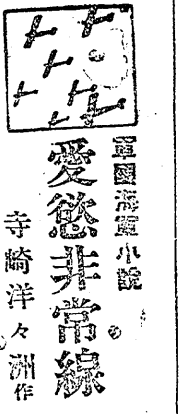 軍國海軍小說
愛慾非常線
寺崎洋々洲作